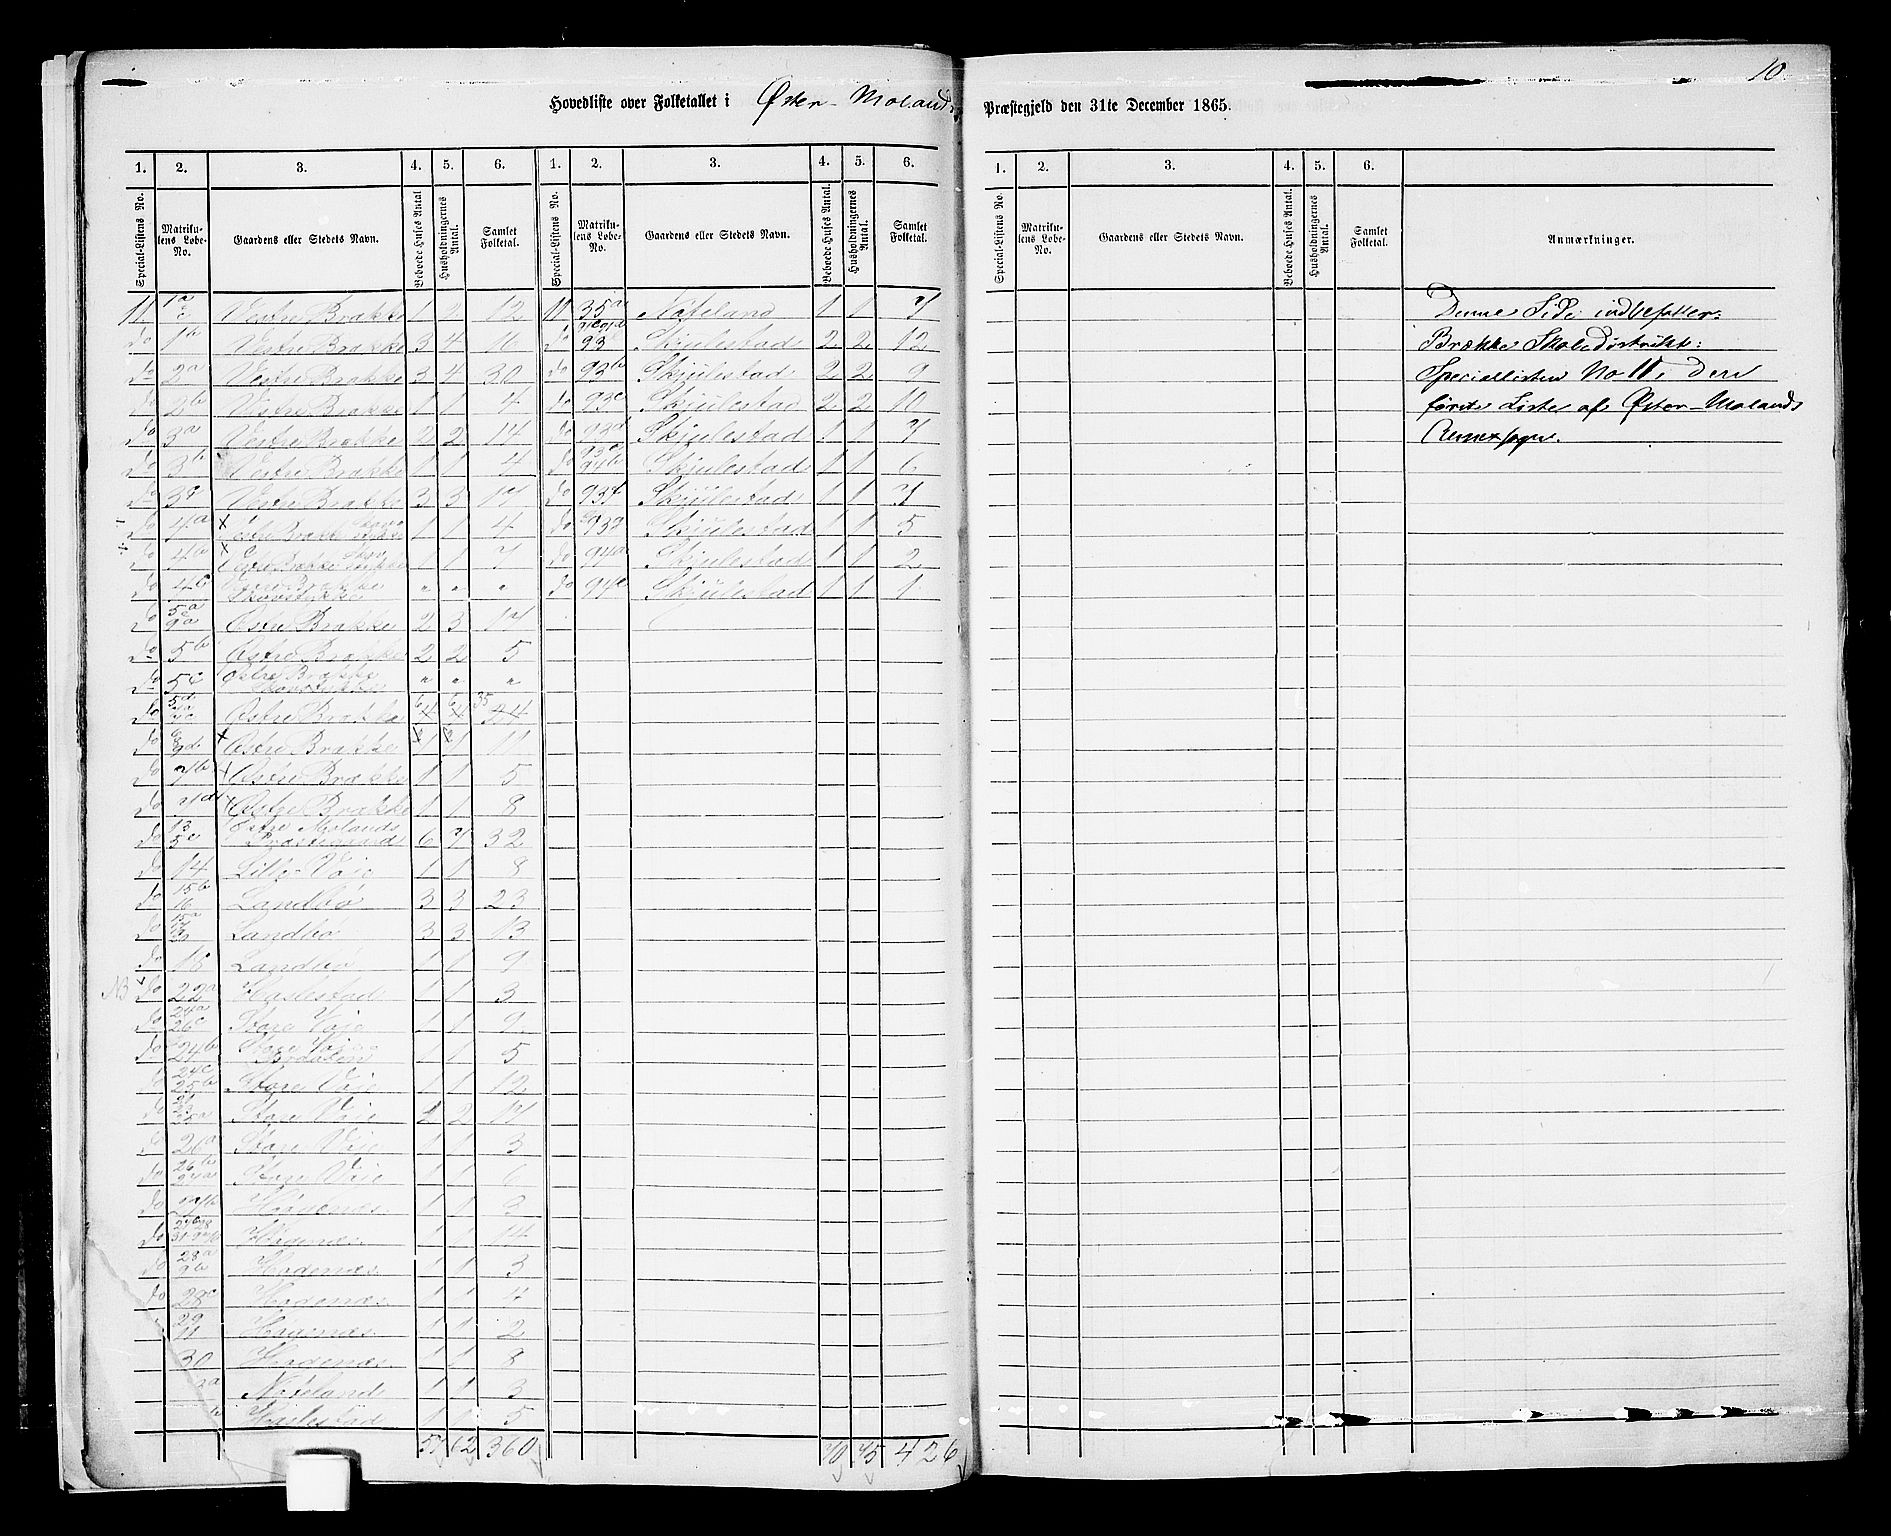 10
Hovedliste over Folketallet i Øster-Molands Præstegjeld den 31te December 1865.
1. 2. 3. 4. 5. 6. 1. 2. 3. 4. 5. 6.
Special-Listens No. Matrikulens Løbe-No. Gaardens eller Stedets Navn. Beboede Huses Antal Husholdningernes Antal. Samlet Folketal. Special-Listens No. Matrikulens Løbe-No. Gaardens eller Stedets Navn. Beboede Huses Antal. Husholdningernes Antal. Samlet Folketal.
11 Vestre Brække 1 2 12 11 35a Nøteland 1 1 7
do 1b Vestre Brække 3 4 16 do 93 Skjulestad 2 2 12
do 2a Vestre Brække 3 4 30 do 93b Skjulestad 2 2 9
do 2b Vestre Brække 1 1 4 do 93c Skjulestad 2 2 10
do 3a Vestre Brække 2 2 14 do 93d Skjulestad 1 1 7
do 3b Vestre Brække 1 1 4 do 94b Skjulestad 1 1 6
do 3c Vestre Brække 3 3 17 do 93f Skjulestad 1 1 7
do 4a Vestre Brække 1 1 4 do 93g Skjulestad 1 1 5
do Vestre Brække 1 1 7 do 94a Skjulestad 1 1 2
do 4c Vestre Brække Skovstykke " " " do 94c Skjulestad 1 1 1
do 5a 9a Østre Brække 2 3 17
do 5b Østre Brække 2 2 5
do 5c Østre Brække Skovstykke " " "
do 5d Østre Brække 6 4 6 4 35 24
do 9d Østre Brække 1 1 11
do 7b Østre Brække 1 1 5
do 7d Østre Brække 1 1 8
do 13 5e Østre Molands Præstegaard 6 7 32
do 14 Lille Vaje 1 1 8
do 15b 16 Landbø 3 3 23
do 15a Landbø 3 3 13
do 18 Landbø 1 1 9
NB do 22a Haslestad 1 1 3
do 24a 26c Store Vaje 1 1 9
do 24b Store Vaje 1 1 5
do 24c 25b Store Vaje 1 1 12
do Store Vaje 2 2 17
26a Store Vaje 1 1 3
do 26b Store Vaje 1 1 6
do Høgenæs 1 1 3
do Høgenæs 1 1 14
do 28a Høgenæs 1 1 3
do 28c Høgenæs 1 1
29 Høgenæs 1 1 2
30 Høgenæs 1 1 8
Nøteland 1 1 3
Haslestad 1 1 5
57 62 360 70 75 426
1. 2. 3. 4. 5. 6.
Special-Listens No. Matrikulens Løbe-No. Gaardens eller Stedets Navn. Beboede Huses Antal. Husholdningernes Antal. Samlet Folketal. Anmærkninger.
Denne Side indbefatter
Brække Skoledistrikt:
Speciallisten No 11, den
første Liste af Øster-Molands
Annexsogn.